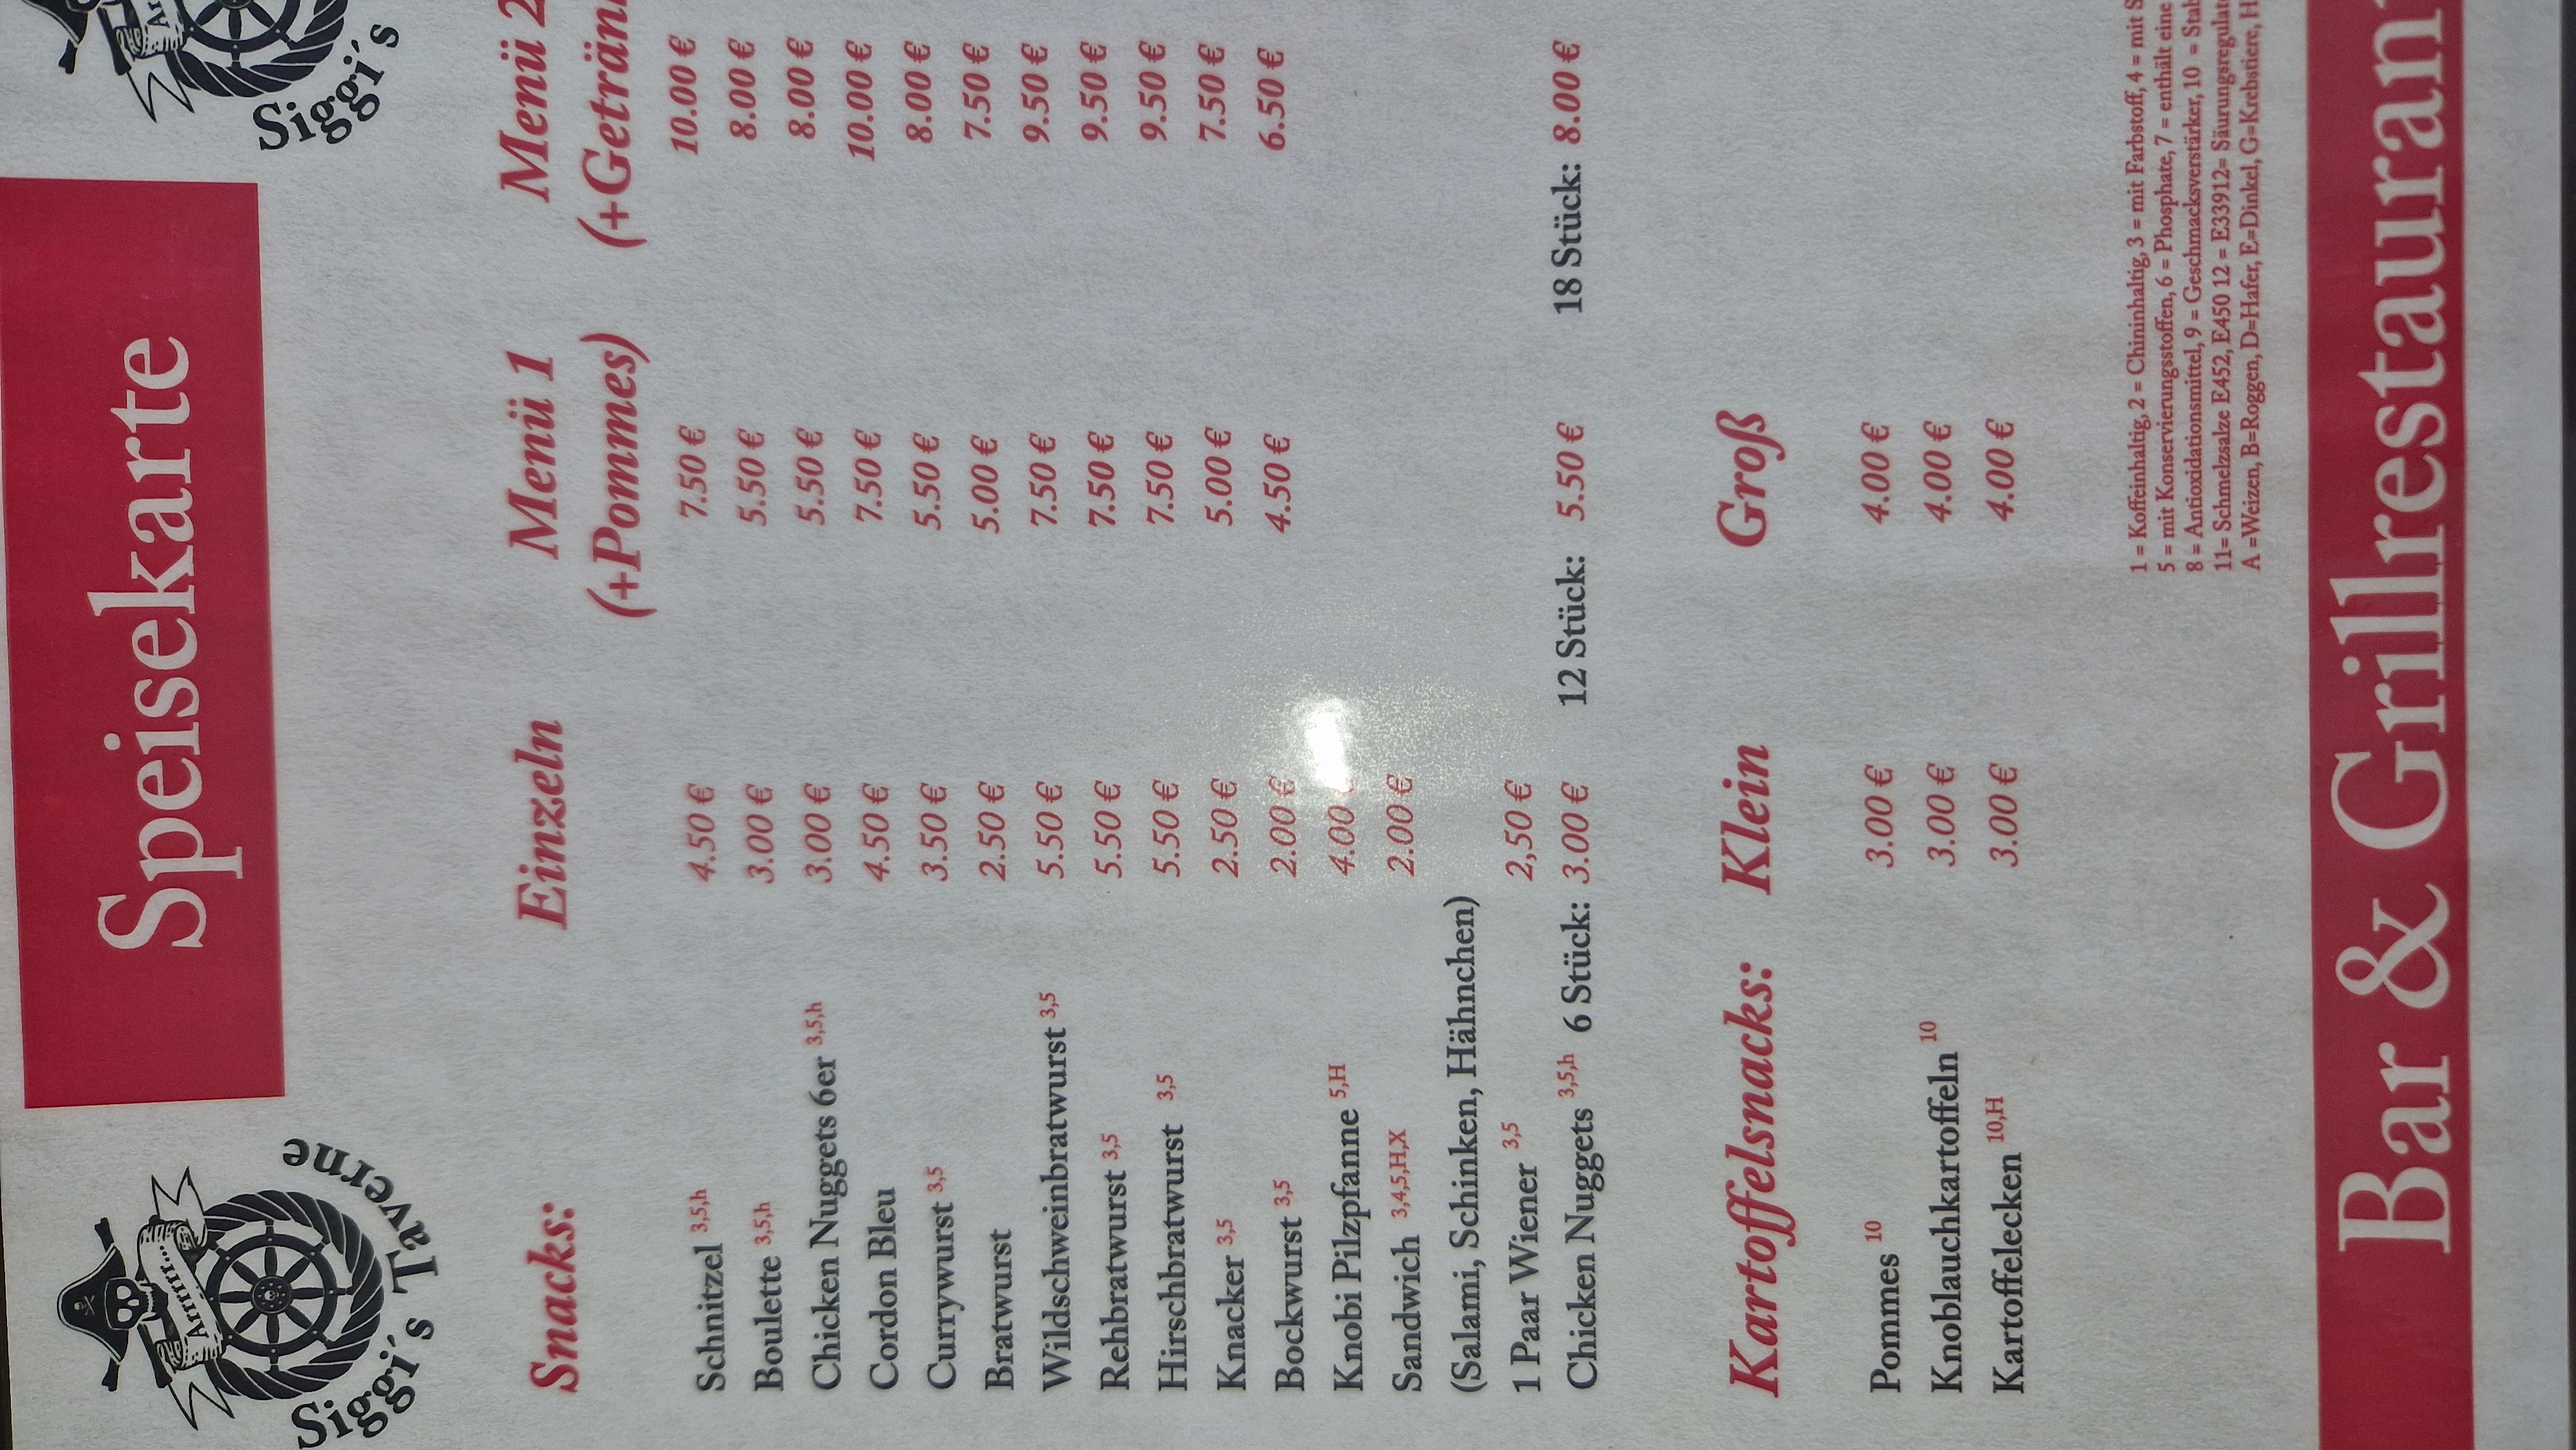 Arrrrr...
Siggi's Taverne
Speisekarte
Siggi's
Snacks: Einzeln Menü 1 Menü 2
(+Pommes) (+Geträn
Schnitzel 3,5,h 4.50 € 7.50 € 10.00 €
Boulette 3,5,h 3.00 € 5.50 € 8.00 €
Chicken Nuggets 6er 3,5,h 3.00 € 5.50 € 8.00 €
Cordon Bleu 4.50 € 7.50 € 10.00 €
Currywurst 3,5 3.50 € 5.50 € 8.00 €
Bratwurst 2.50 € 5.00 € 7.50 €
Wildschweinbratwurst 3,5 5.50 € 7.50 € 9.50 €
Rehbratwurst 3,5 5.50 € 7.50 € 9.50 €
Hirschbratwurst 3,5 5.50 € 7.50 € 9.50 €
Knacker 3,5 2.50 € 5.00 € 7.50 €
Bockwurst 3,5 2.00 € 4.50 € 6.50 €
Knobi Pilzpfanne 5,H 4.00 €
Sandwich 3,4,5,H,X 2.00 €
(Salami, Schinken, Hähnchen)
1 Paar Wiener 3,5 2,50 €
Chicken Nuggets 3,5,h 6 Stück: 3.00 € 12 Stück: 5.50 € 18 Stück: 8.00 €
Kartoffelsnacks: Klein Groß
Pommes 10 3.00 € 4.00 €
Knoblauchkartoffeln 10 3.00 € 4.00 €
Kartoffelecken 10,H 3.00 € 4.00 €
1 = Koffeinhaltig, 2 = Chininhaltig, 3 = mit Farbstoff, 4 = mit S
5 = mit Konservierungsstoffen, 6 = Phosphate, 7 = enthält eine
8 = Antioxidationsmittel, 9 = Geschmacksverstärker, 10 = Stab
11= Schmelzsalze E452, E450 12 = E33912= Säurungsregulat
A =Weizen, B=Roggen, D=Hafer, E=Dinkel, G=Krebstiere, H
Bar & Grillrestauran